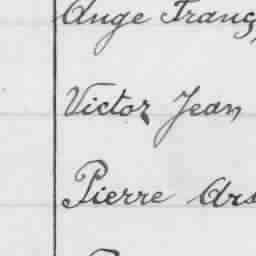 Ange Franç
Victor Jean
Pierre Ars